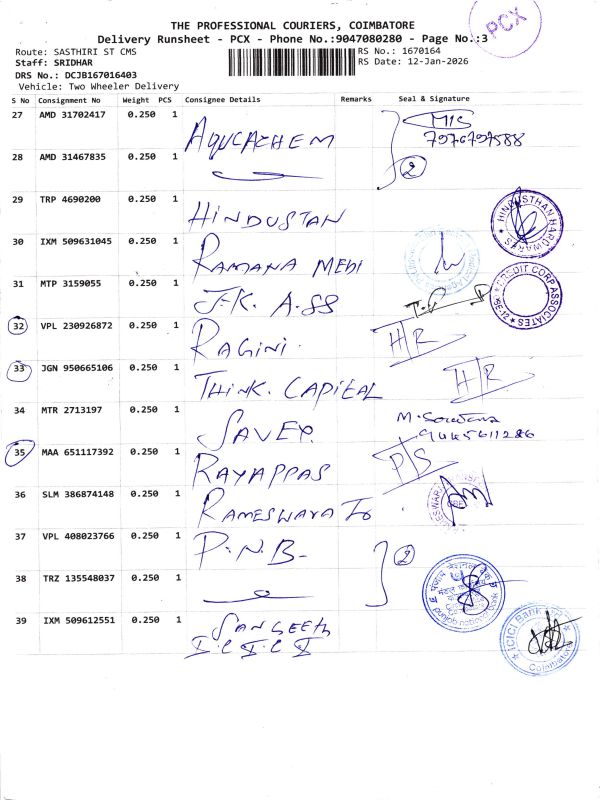 PCX
THE PROFESSIONAL COURIERS, COIMBATORE
Delivery Runsheet - PCX - Phone No.:9047080280 - Page No.:3
Route: SASTHIRI ST CMS
RS No.: 1670164
Staff: SRIDHAR
RS Date: 12-Jan-2026
DRS No.: DCJB167016403
Vehicle: Two Wheeler Delivery
S No Consignment No Weight PCS Consignee Details Remarks Seal & Signature
27 AMD 31702417 0.250 1
7976797588
28 AMD 31467835 0.250 1
2
29 TRP 4690200 0.250 1 HINDUSTAN
HINDUSTHAN HARDWARES
30 IXM 509631045 0.250 1 RAMANA MEDI
31 MTP 3159055 0.250 1 J.K. A.SS
CREDIT CORP ASSOCIATES
32 VPL 230926872 0.250 1 RAGINI. H/R
33 JGN 950665106 0.250 1 THINK. CAPITAL H/R
34 MTR 2713197 0.250 1 SAVEX.
9445611286
35 MAA 651117392 0.250 1 RAYAPPAS P/S
36 SLM 386874148 0.250 1 RAMESWARA
37 VPL 408023766 0.250 1 P.N.B- 2
38 TRZ 135548037 0.250 1
punjab national bank
39 IXM 509612551 0.250 1 SANGEETH
I.C I.C I
ICICI Bank
Coimbatore